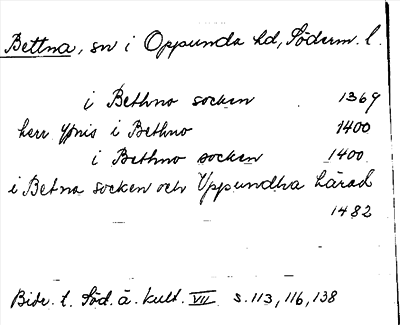 Bettna, sn i Oppunda hd, Söderm. l.
i Bethno socken 1369
herr Ypnis i Bethno 1400
i Bethno socken 1400
i Betna socken och Uppundha härad
1482
Bidr. t. Söd. ä. kult. VII s. 113, 116, 138